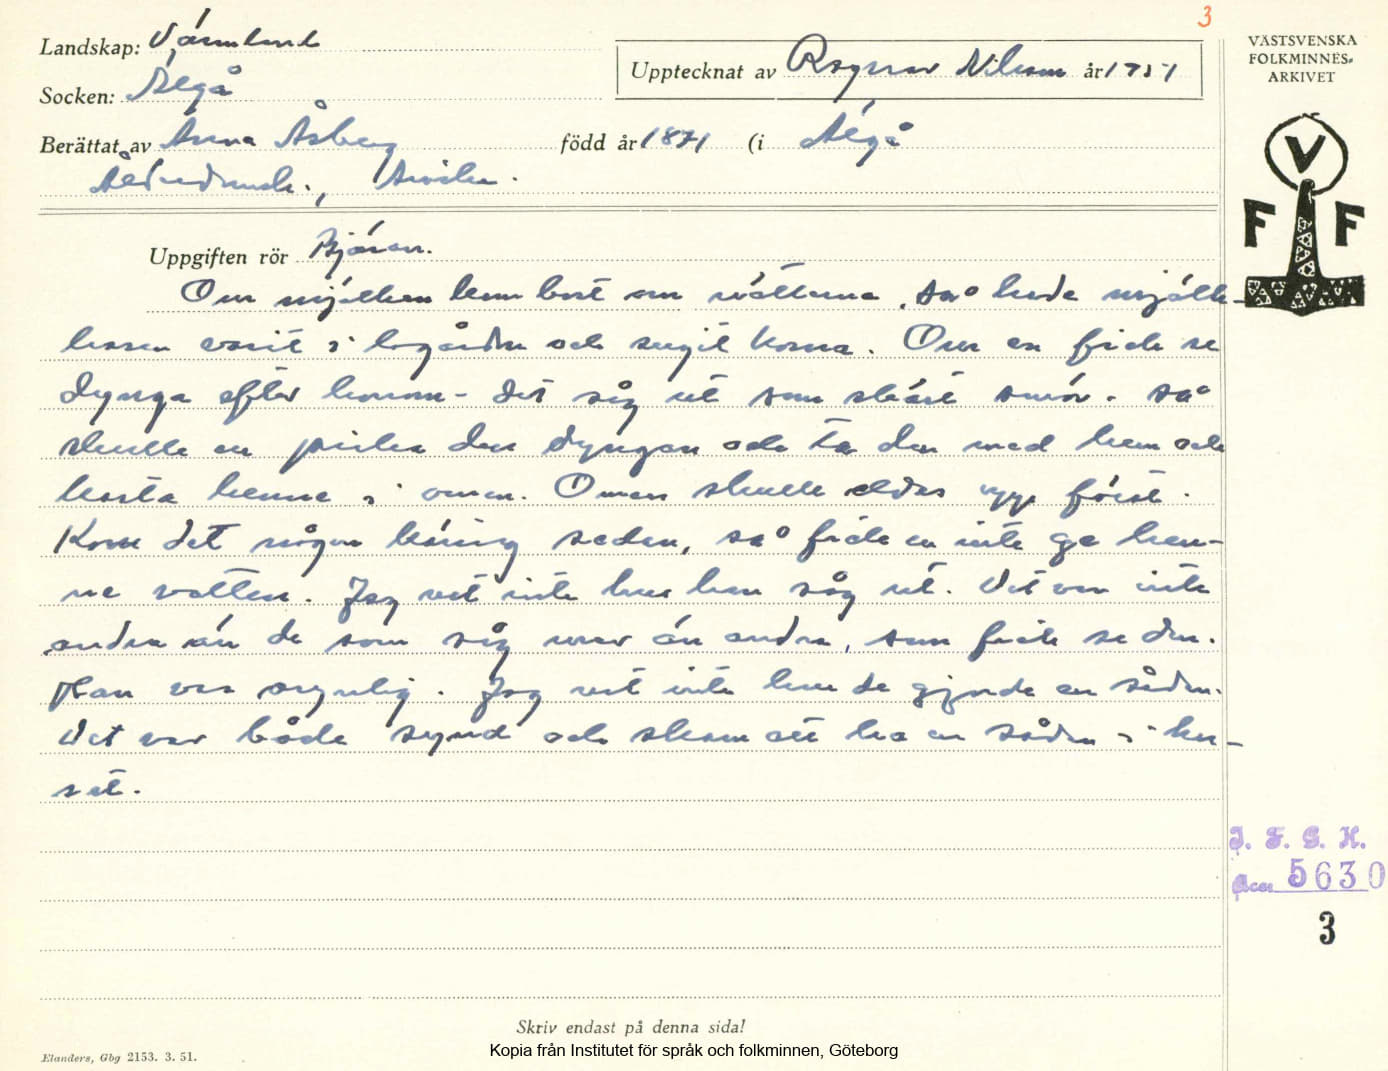 3
Landskap: Värmland
Upptecknat av Ragnar Nilsson år 1951
VÄSTSVENSKA
FOLKMINNES-
ARKIVET
Socken: Älgå
Berättat av Anna Åsberg född år 1871 (i Älgå
Arvika.
V F F
Uppgiften rör Bjäran.
Om mjölken kom bort om nätterna, så hade mjölk-
haren varit i lagården och sugit korna. Om en fick se
dynga efter honom - det såg ut som skärt smör - så
skulle en piska den dyngan och ta den med hem och
kasta henne i omen. Omen skulle eldas upp först.
Kom det någon käring sedan, så fick en inte ge hen-
ne vatten. Jag vet inte hur han såg ut. Det var inte
andra än de som såg mer än andra, som fick se den.
Han var osynlig. Jag vet inte hur de gjorde en sådan.
Det var både synd och skam att ha en sådan i hu-
set.
I. F. G. H.
Acc. 5630
3
Skriv endast på denna sida!
Elanders, Gbg 2153. 3. 51.
Kopia från Institutet för språk och folkminnen, Göteborg